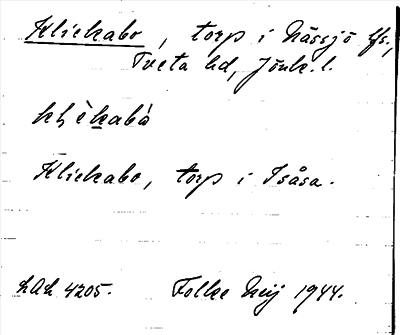 Klickabo, torp i Nässjö lfs.,
Tveta hd, Jönk. l.
Klickabo, torp i Isåsa.
LAL 4205. Folke Neij 1944.